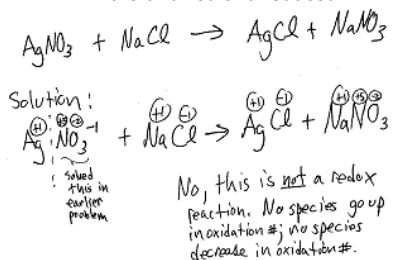 AgNO3 + NaCl → AgCl + NaNO3
Solution:
+1 +5 -2 +1 -1 +1 -1 +1 +5 -2
Ag NO3 -1 + NaCl → AgCl + NaNO3
solved
this in
earlier
problem
No, this is not a redox
reaction. No species go up
in oxidation #; no species
decrease in oxidation #.